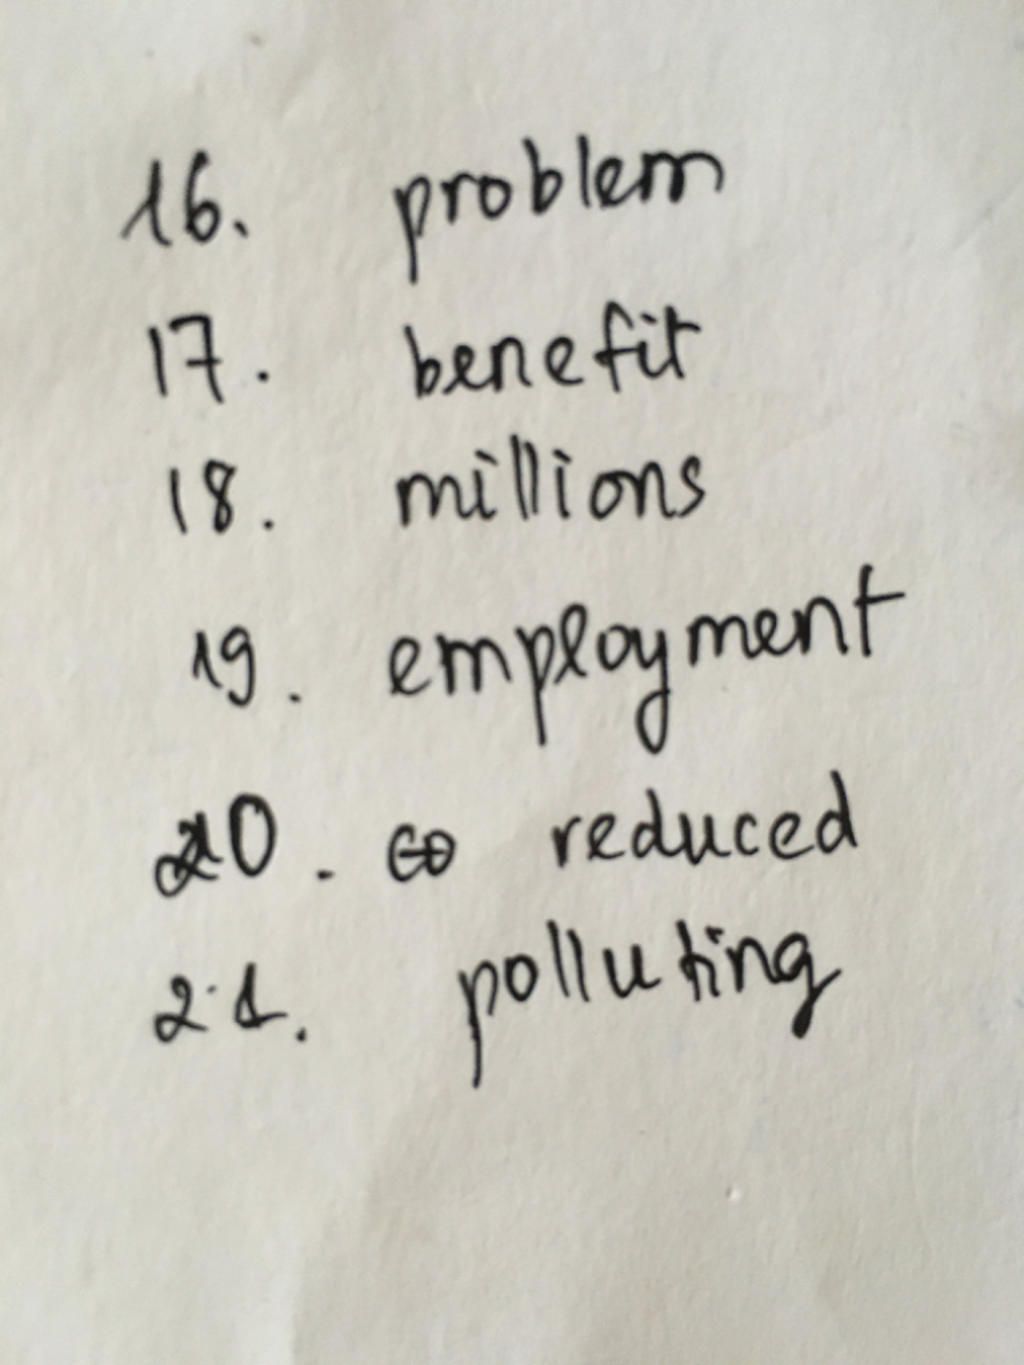 16. problem
17. benefit
18. millions
19. employment
20. reduced
21. polluting